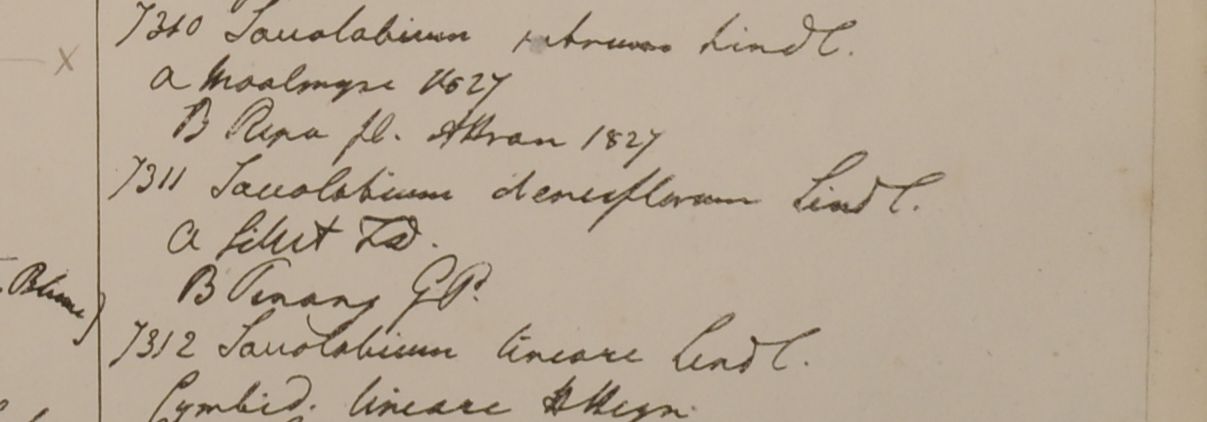 7310 Saccolabium rubrum Lindl.
a Moalmyne 1827
B Ripa fl. Attran 1827
7311 Saccolabium densiflorum Lindl.
a Silhet FD.
B Penang GP.
Blume)
7312 Saccolabium lineare Lindl.
Cymbid. lineare Heyn